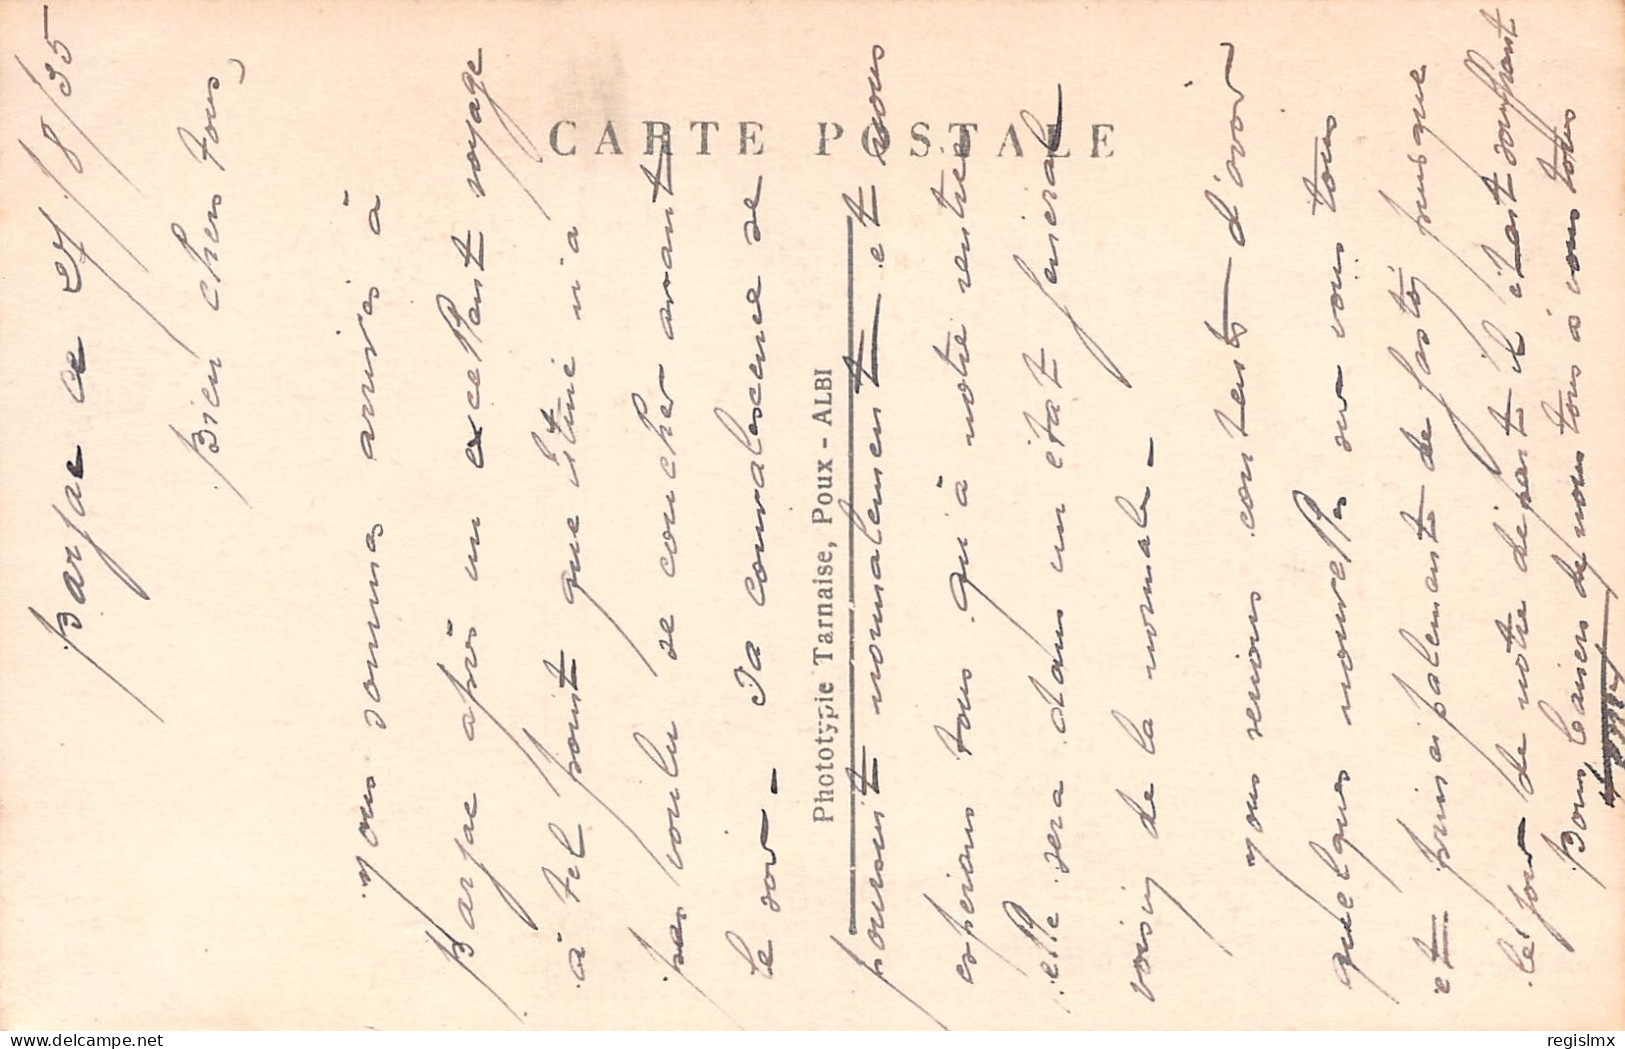 Barjac ce 27/8/35
Bien chers tous,
Nous sommes arrivés à
Barjac après un excellent voyage
à tel point que n'a
pas voulu se coucher avant
le soir - Sa convalescence se
poursuit normalement et nous
espérons tous qu'à notre rentrée
elle sera dans un état général
voisin de la normale -
Nous serions contents d'avoir
quelques nouvelles sur vous tous
et principalement de puisque
le jour de notre départ il était souffrant
Bons baisers de nous tous à vous tous
CARTE POSTALE
Phototypie Tarnaise, Poux - ALBI
delcampe.net
regislmx